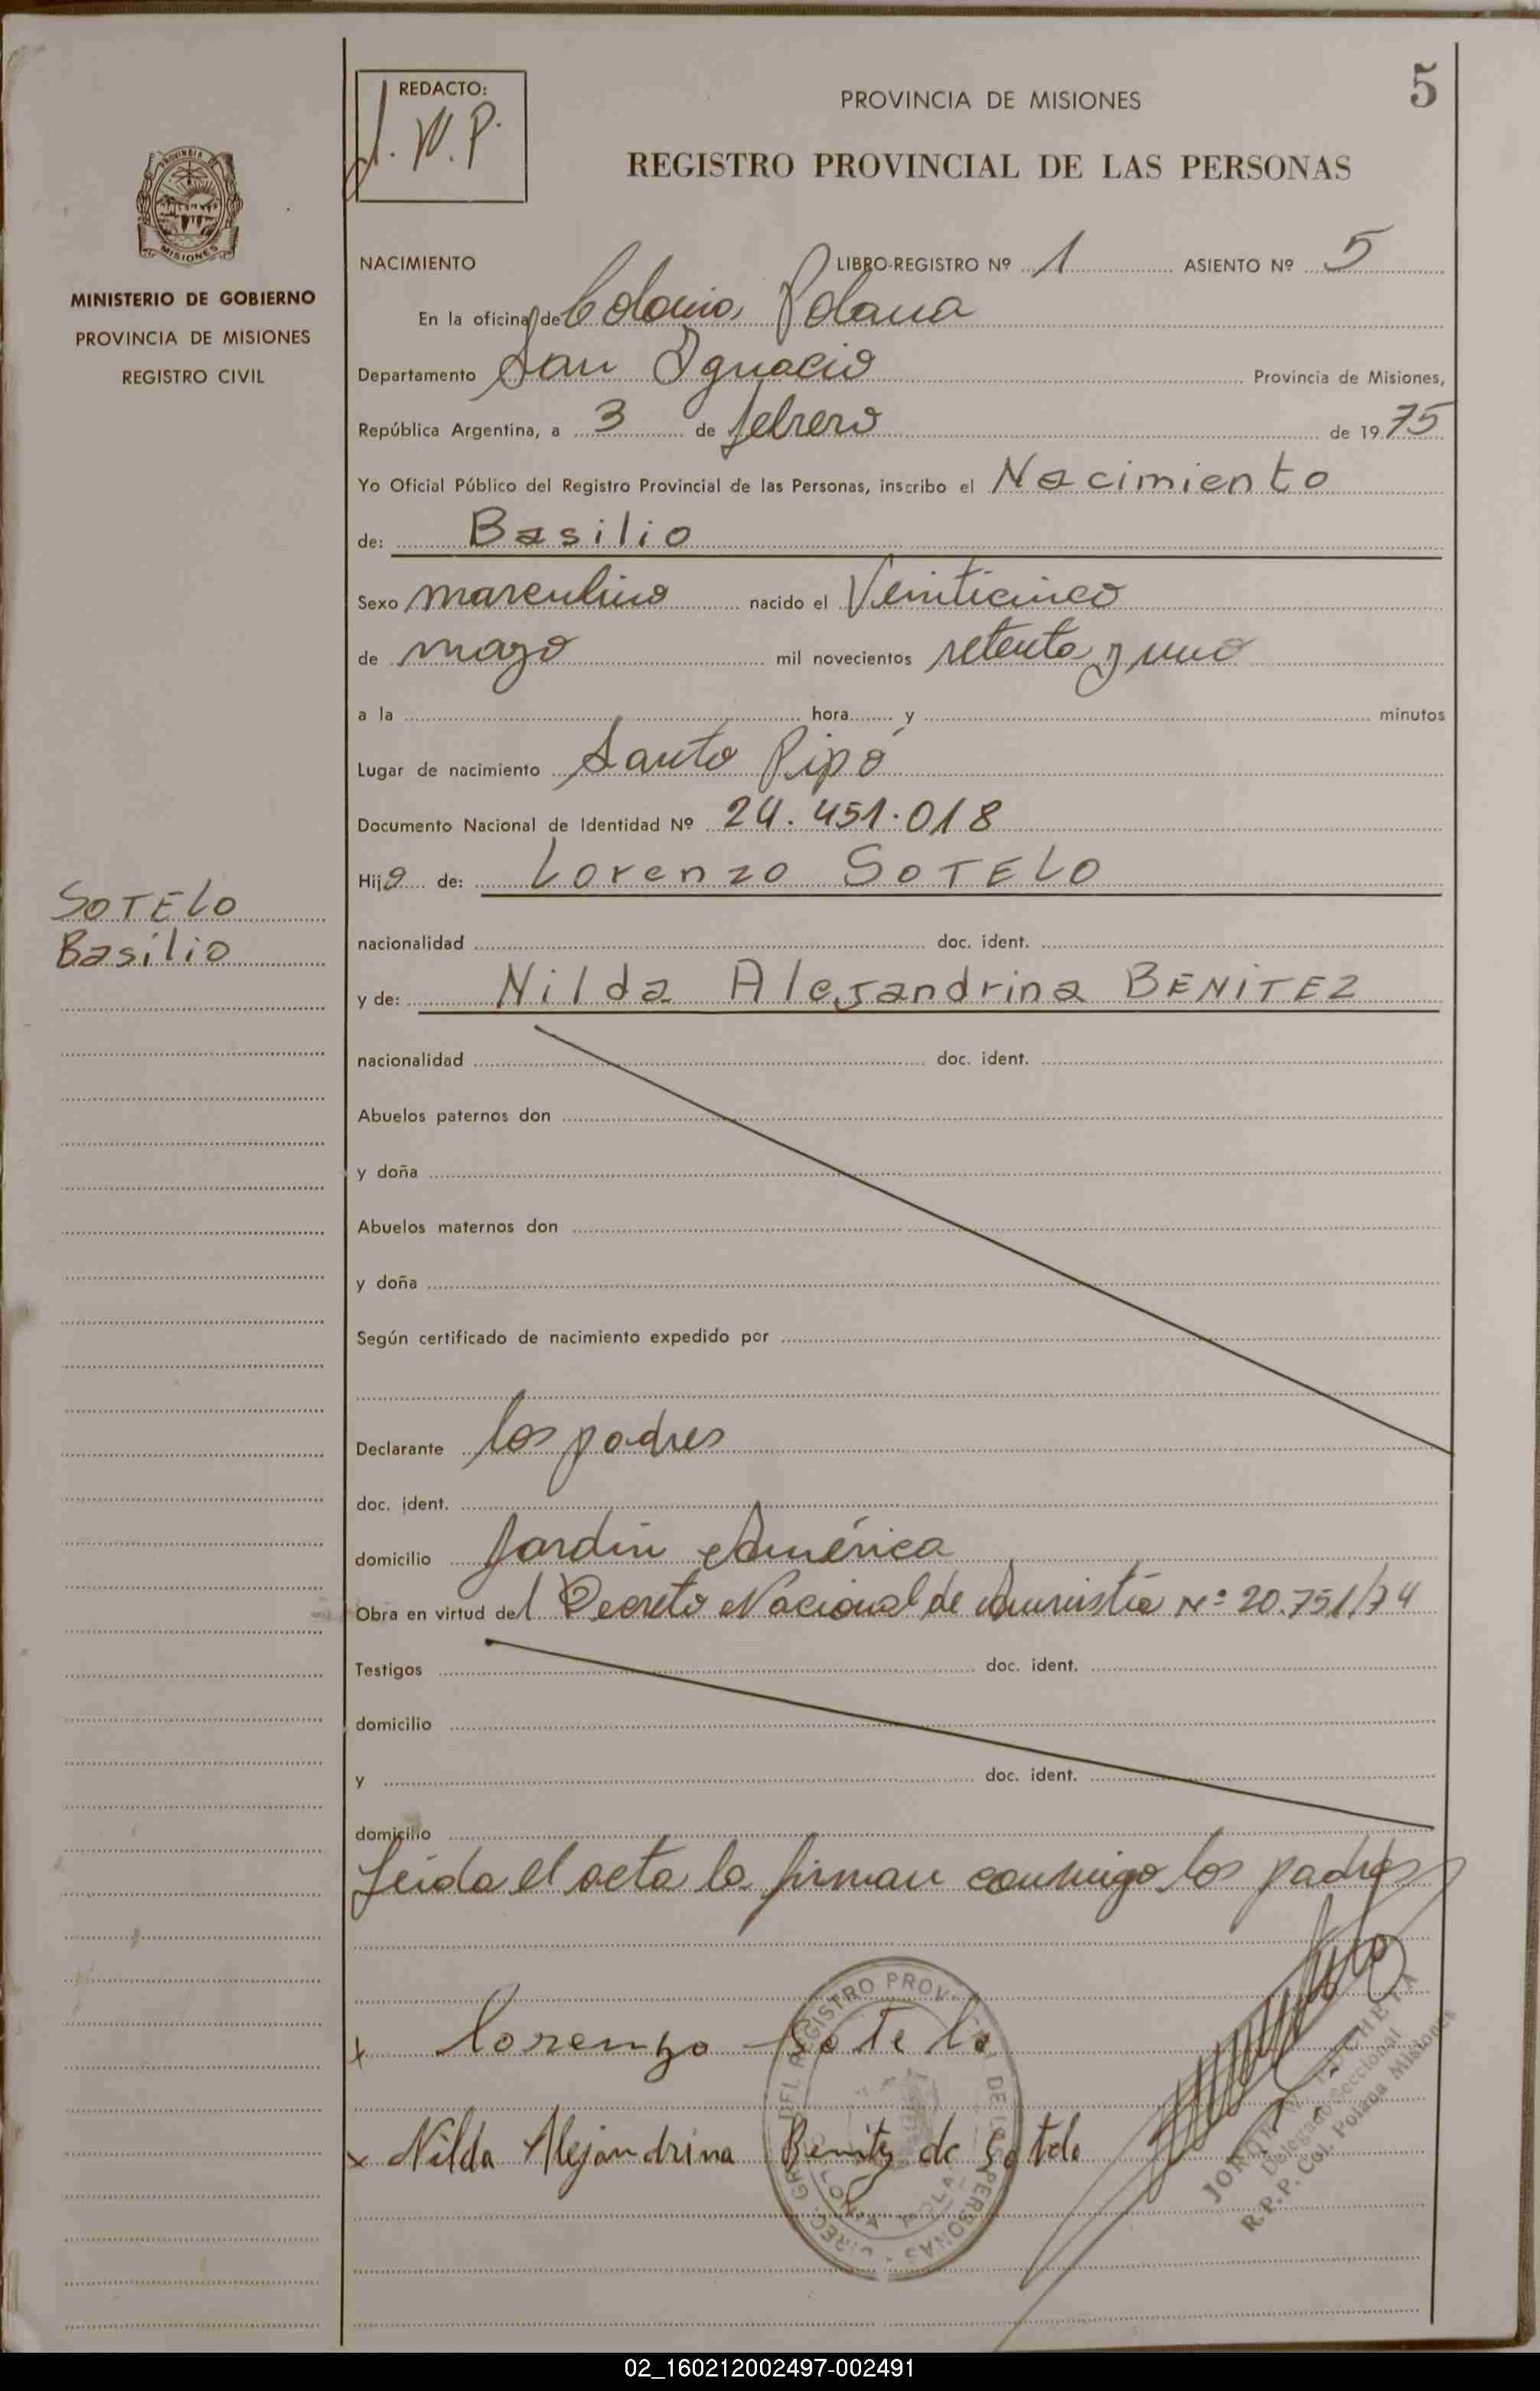 5
REDACTO:
J. W. P.
PROVINCIA DE MISIONES
REGISTRO PROVINCIAL DE LAS PERSONAS
MISIONES
MINISTERIO DE GOBIERNO
PROVINCIA DE MISIONES
REGISTRO CIVIL
NACIMIENTO LIBRO-REGISTRO Nº 1 ASIENTO Nº 5
En la oficina de Colonia Polana
Departamento San Ignacio Provincia de Misiones,
República Argentina, a 3 de febrero de 1975
Yo Oficial Público del Registro Provincial de las Personas, inscribo el Nacimiento
de: Basilio
Sexo masculino nacido el Veinticinco
de mayo mil novecientos setenta y uno
a la hora y minutos
Lugar de nacimiento Santo Pipó
Documento Nacional de Identidad Nº 24.451.018
Hijo de: Lorenzo SOTELO
SOTELO
Basilio
nacionalidad doc. ident.
y de: Nilda Alejandrina BENITEZ
nacionalidad doc. ident.
Abuelos paternos don
y doña
Abuelos maternos don
y doña
Según certificado de nacimiento expedido por
Declarante los padres
doc. ident.
domicilio Jardín América
Obra en virtud del Decreto Nacional de Amnistía Nº 20.751/74
Testigos doc. ident.
domicilio
y doc. ident.
domicilio
Leída el acta la firman conmigo los padres
x Lorenzo Sotelo
x Nilda Alejandrina Benitez de Sotelo
Delegado Seccional
R.P.P. Col. Polana Misiones
02_160212002497-002491